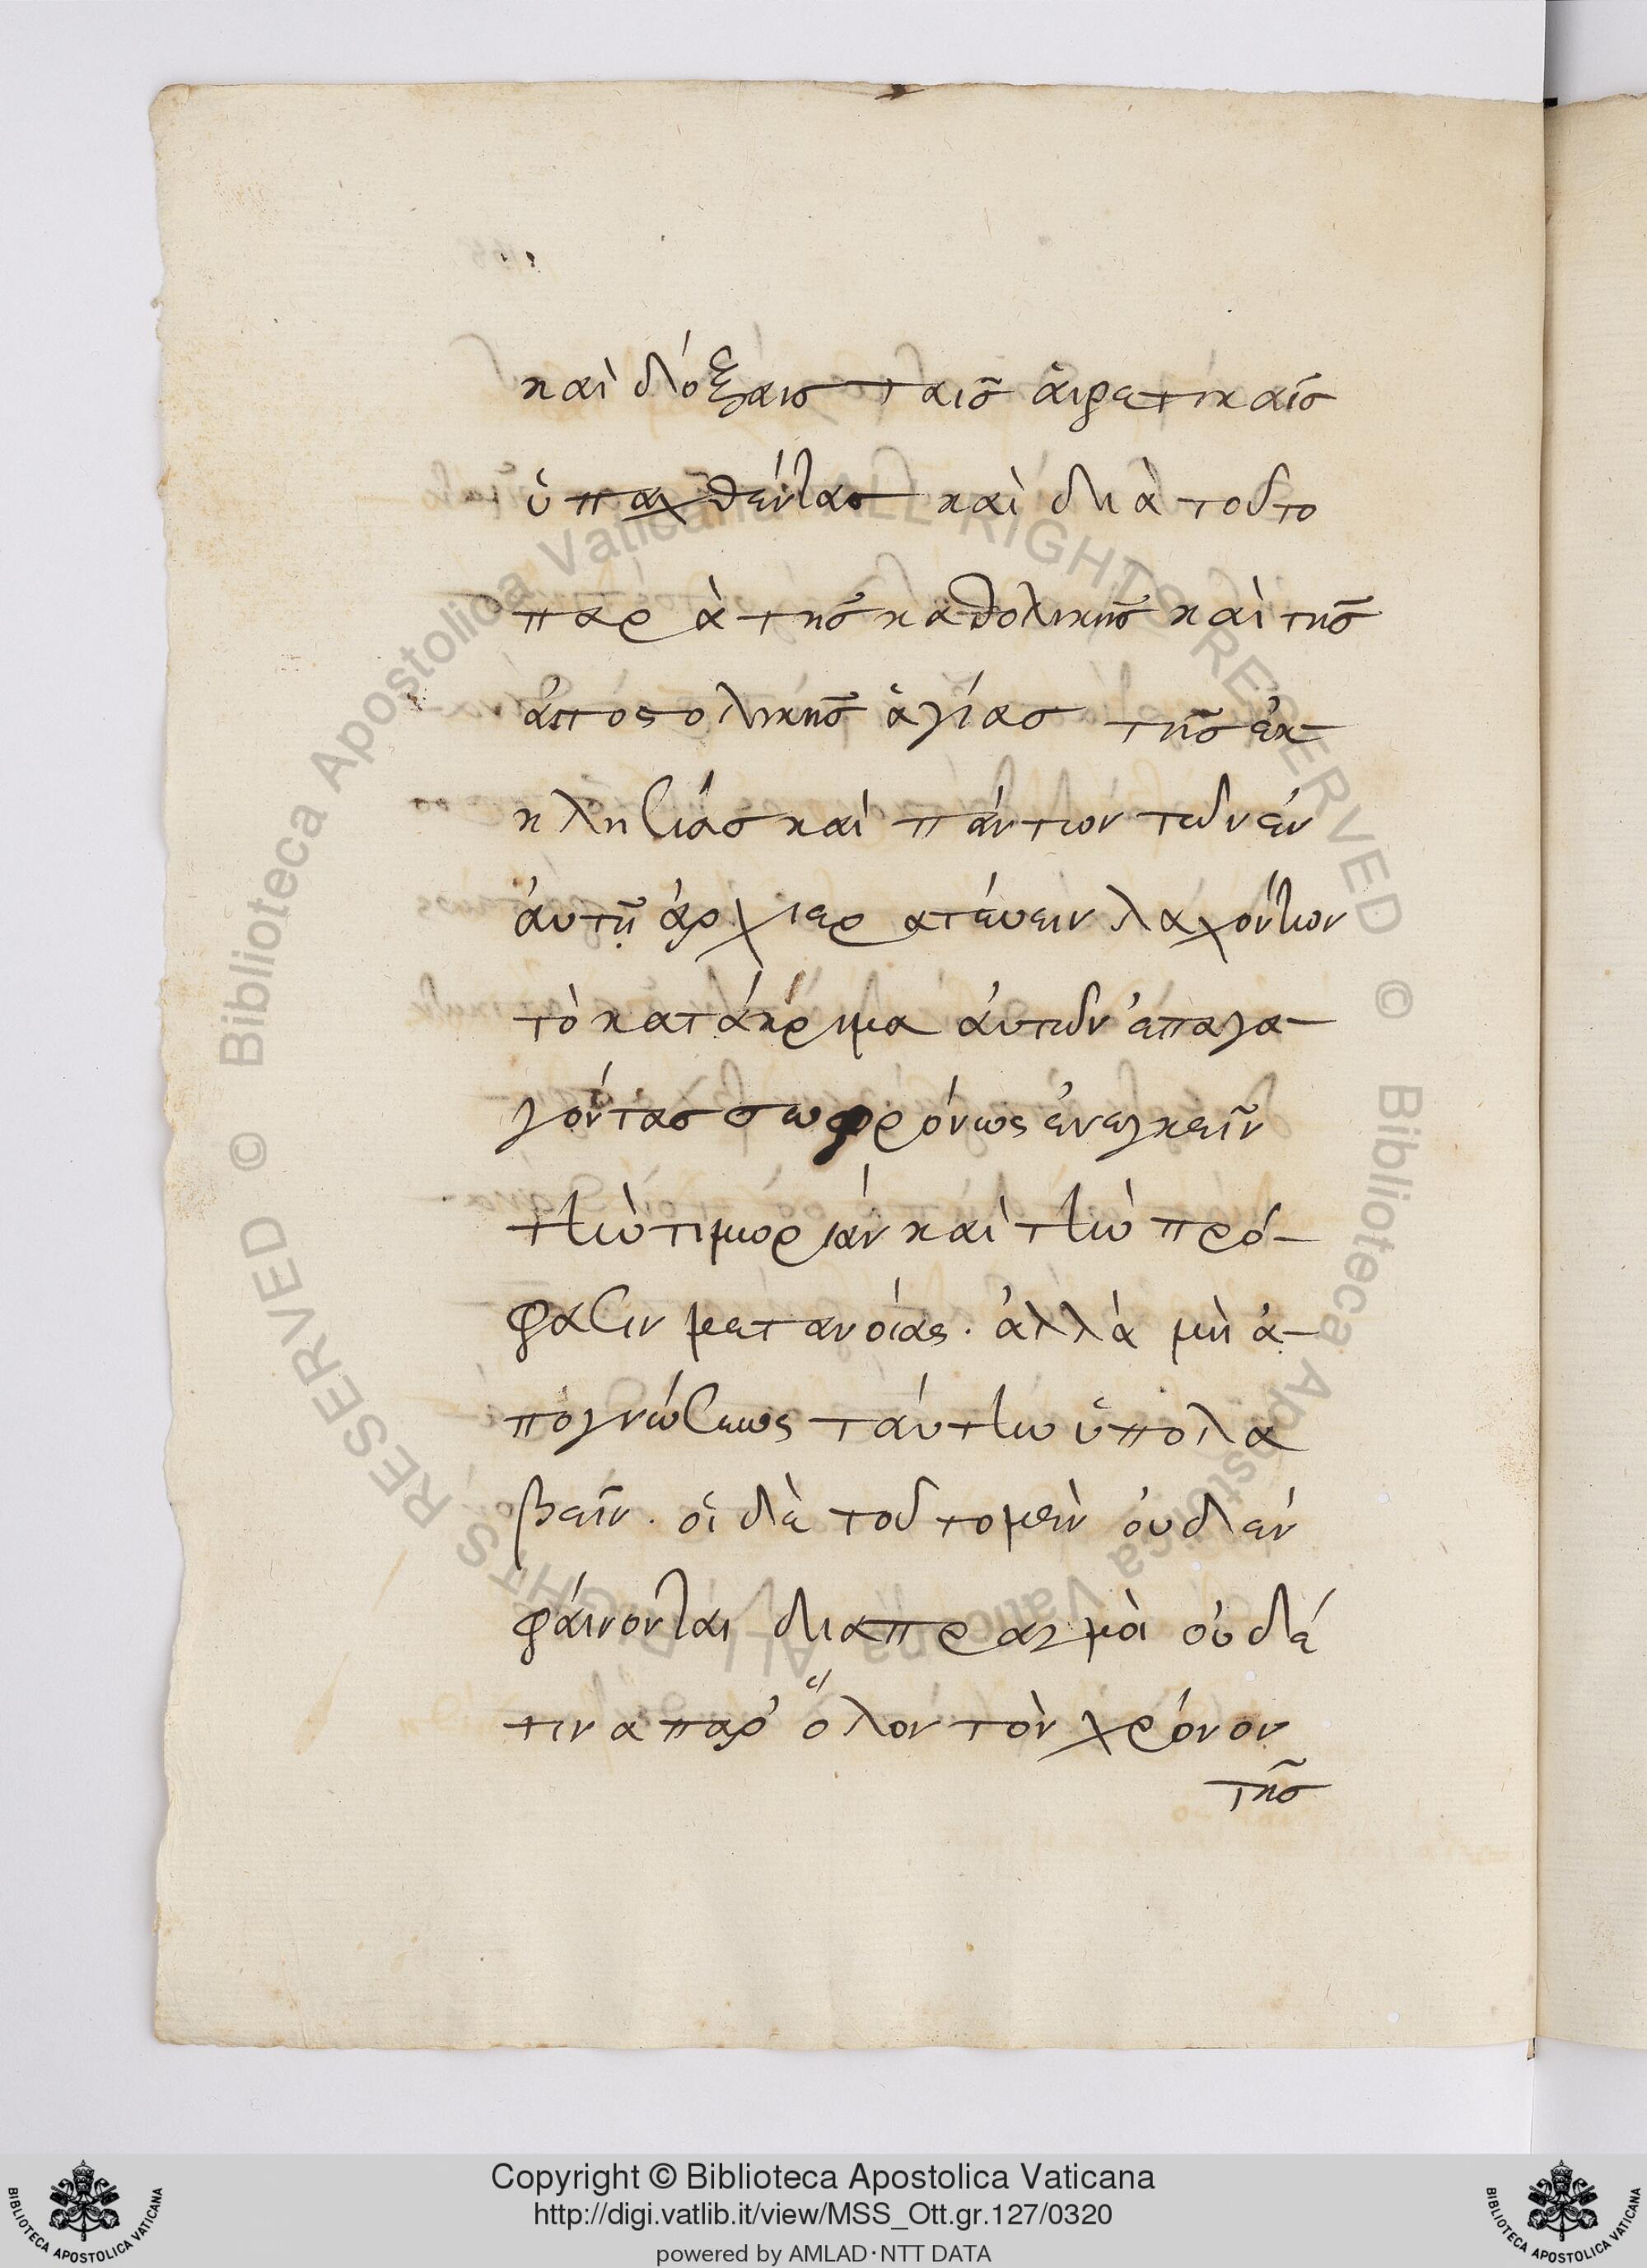 καὶ δόξαις ταῖς ἁιρετικαῖς
ὑπαχθέντας καὶ διὰ τοῦτο
παρὰ τῆς καθολικῆς καὶ τῆς
ἀποστολικῆς ἁγίας τῆς ἐκ-
κλησίας καὶ πάντων τῶν ἐν
ἀυτῇ ἀρχιερατέυειν λαχόντων
τὸ κατάκριμα ἀυτῶν ἐπαγα-
γόντας σωφρόνως ἐνεγκεῖν
τὴν τιμωρίαν καὶ τὴν πρό-
φασιν μετανοίας. ἀλλὰ μὴ ἀ-
πογνώσεως τάυτην ὑπολα
βεῖν. ὁι δὲ τοῦτο μὲν ὀυδὲν
φάινονται διαπραγμὰι ὀυδέ
τινα παρ' ὅλον τὸν χρόνον
τῆς
Copyright © Biblioteca Apostolica Vaticana
http://digi.vatlib.it/view/MSS_Ott.gr.127/0320
powered by AMLAD·NTT DATA
BIBLIOTECA APOSTOLICA VATICANA
BIBLIOTECA APOSTOLICA VATICANA
© Biblioteca Apostolica Vaticana ALL RIGHTS RESERVED © Biblioteca Apostolica Vaticana ALL RIGHTS RESERVED